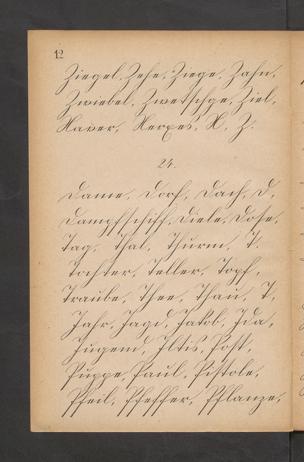 12
Ziegel, Zehe, Ziege, Zahn,
Zwiebel, Zwetschge, Ziel,
Xaver, Xerxes, X, Z.
24.
Dame, Dorf, Dach, D,
Dampfschiff, Diele, Dose,
Tag, Thal, Thurm, T.
Tochter, Teller, Topf,
Traube, Thee, Thau, T,
Jahr, Jagd, Jakob, Ida,
Jugend, Iltis, Post,
Puppe, Paul, Pistole,
Pfeil, Pfeffer, Pflanze,